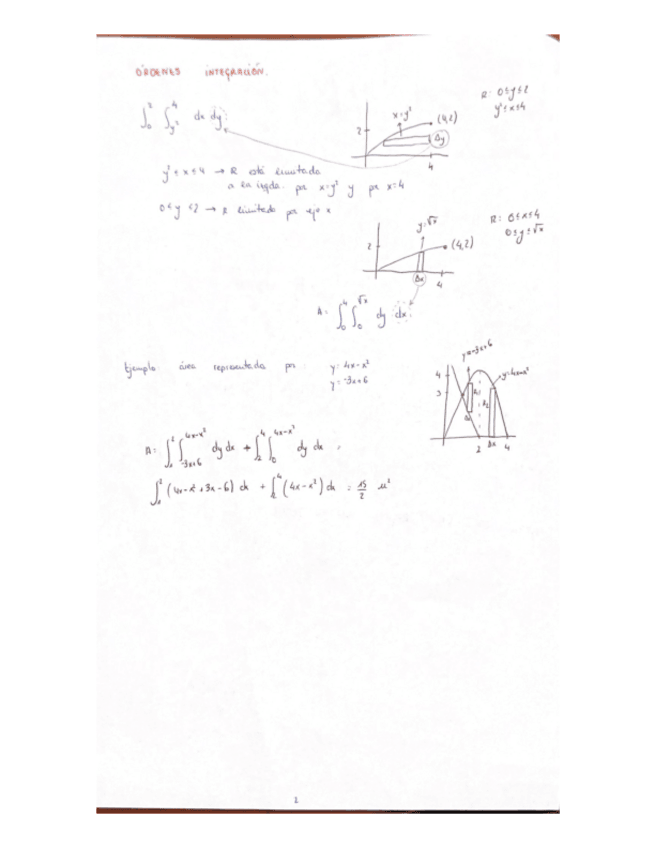 ÓRDENES INTEGRACIÓN.
∫₀² ∫_{y²}^4 dx dy
x=y²
(4,2)
2
Δy
4
R: 0≤y≤2
y²≤x≤4
y²≤x≤4 → R está limitada
a la izqda. por x=y² y por x=4
0≤y≤2 → R limitada por eje x
y=√x
(4,2)
2
Δx
4
R: 0≤x≤4
0≤y≤√x
A= ∫₀⁴ ∫₀^{√x} dy dx
Ejemplo área representada por y= 4x-x²
y= -3x+6
y=-3x+6
y=4x-x²
4
3
2
4
Δx
A= ∫₁² ∫_{-3x+6}^{4x-x²} dy dx + ∫₂⁴ ∫₀^{4x-x²} dy dx =
∫₁² (4x-x²+3x-6) dx + ∫₂⁴ (4x-x²) dx = 15/2 u²